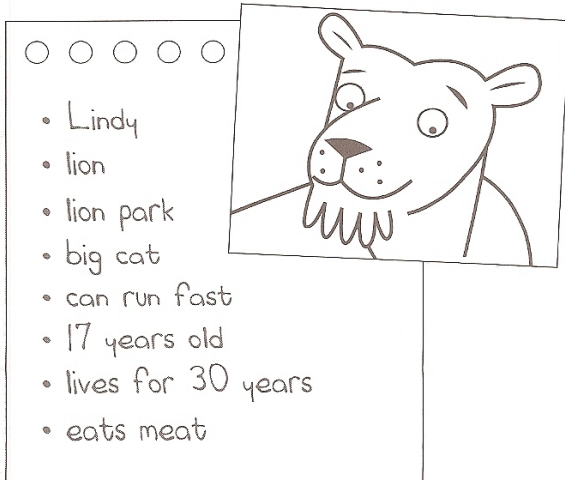 • Lindy
• lion
• lion park
• big cat
• can run fast
• 17 years old
• lives for 30 years
• eats meat